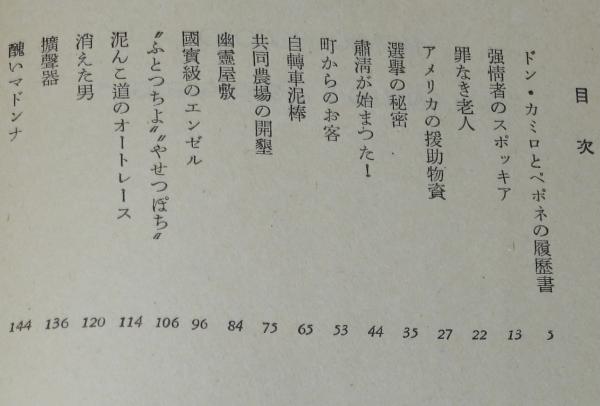 目次
ドン・カミロとペポネの履歴書 5
强情者のスポッキア 13
罪なき老人 22
アメリカの援助物資 27
選擧の秘密 35
肅淸が始まつた! 44
町からのお客 53
自轉車泥棒 65
共同農場の開墾 75
幽靈屋敷 84
國寶級のエンゼル 96
〝ふとつちよ〟〝やせつぽち〟 106
泥んこ道のオートレース 114
消えた男 120
擴聲器 136
醜いマドンナ 144